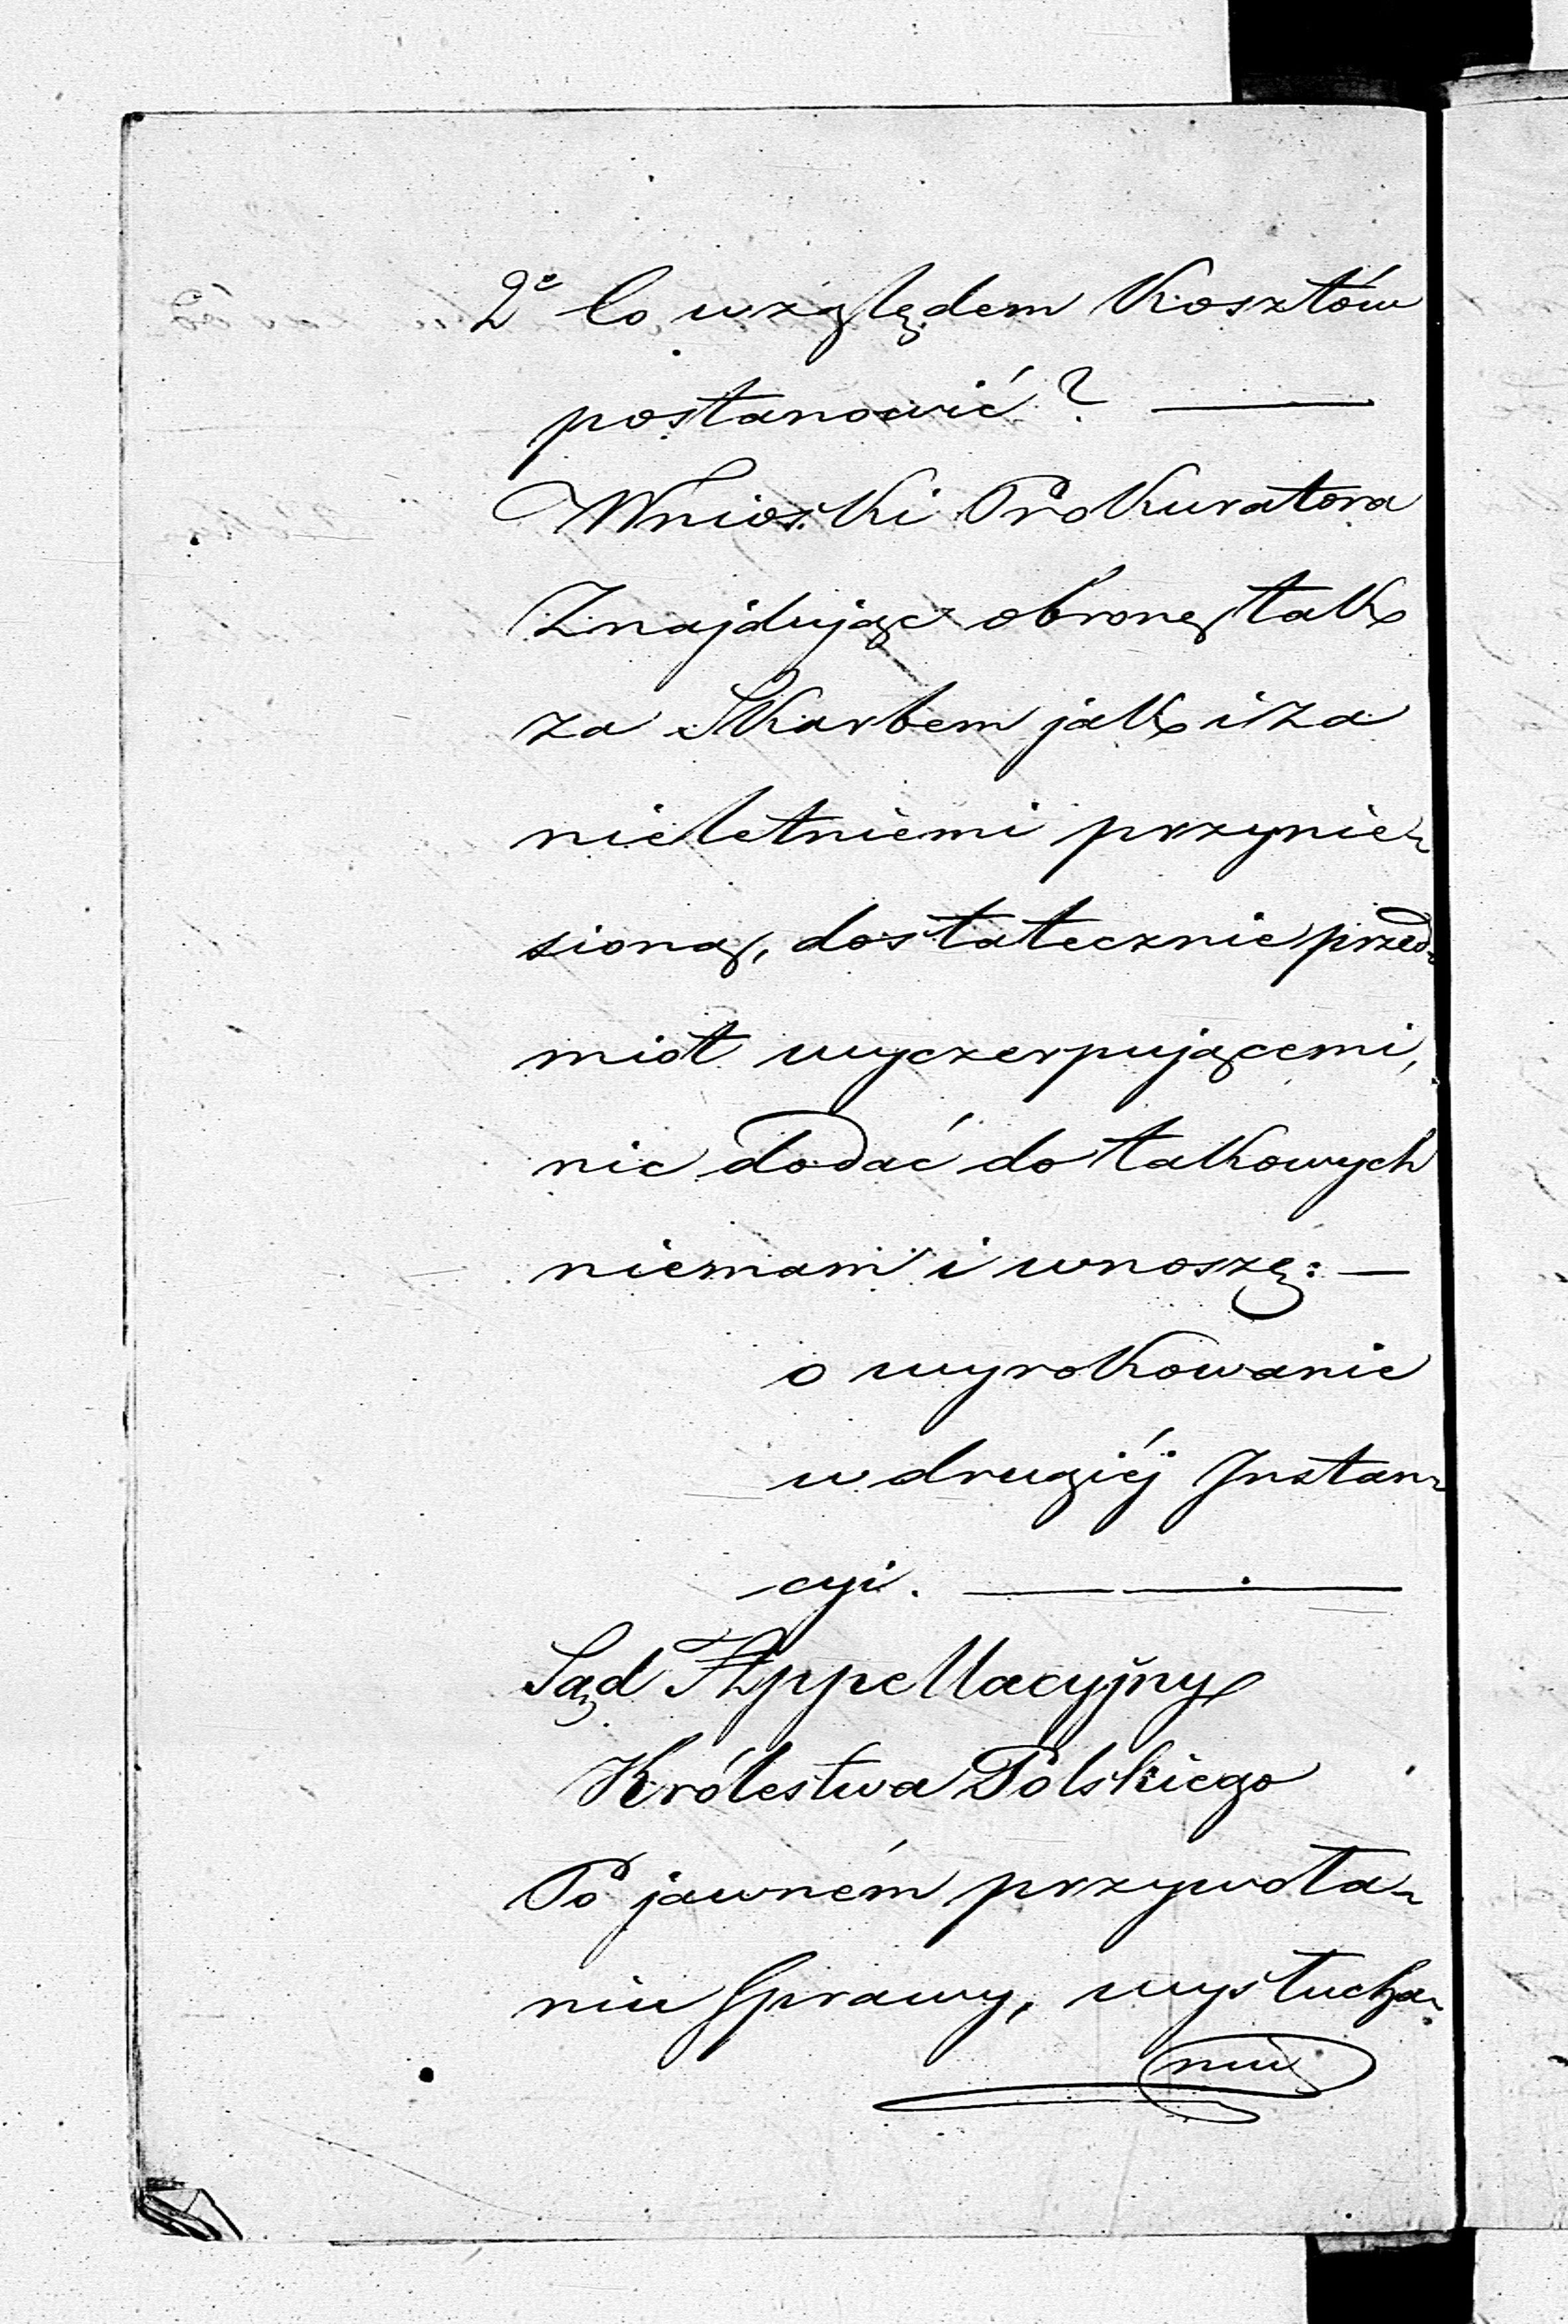 2e Co względem Kosztów
postanowić? —
Wnioski Prokuratora
Znajdując obronę tak
za Skarbem jak i za
nieletniemi przynie-
sioną, dostatecznie przed-
miot wyczerpującemi,
nic dodać do takowych
niemam i wnoszę: —
o wyrokowanie
w drugiéj Instan-
cyi. —
Sąd Appellacyjny
Królestwa Polskiego
Po jawném przywoła-
niu Sprawy, wysłucha-
niu